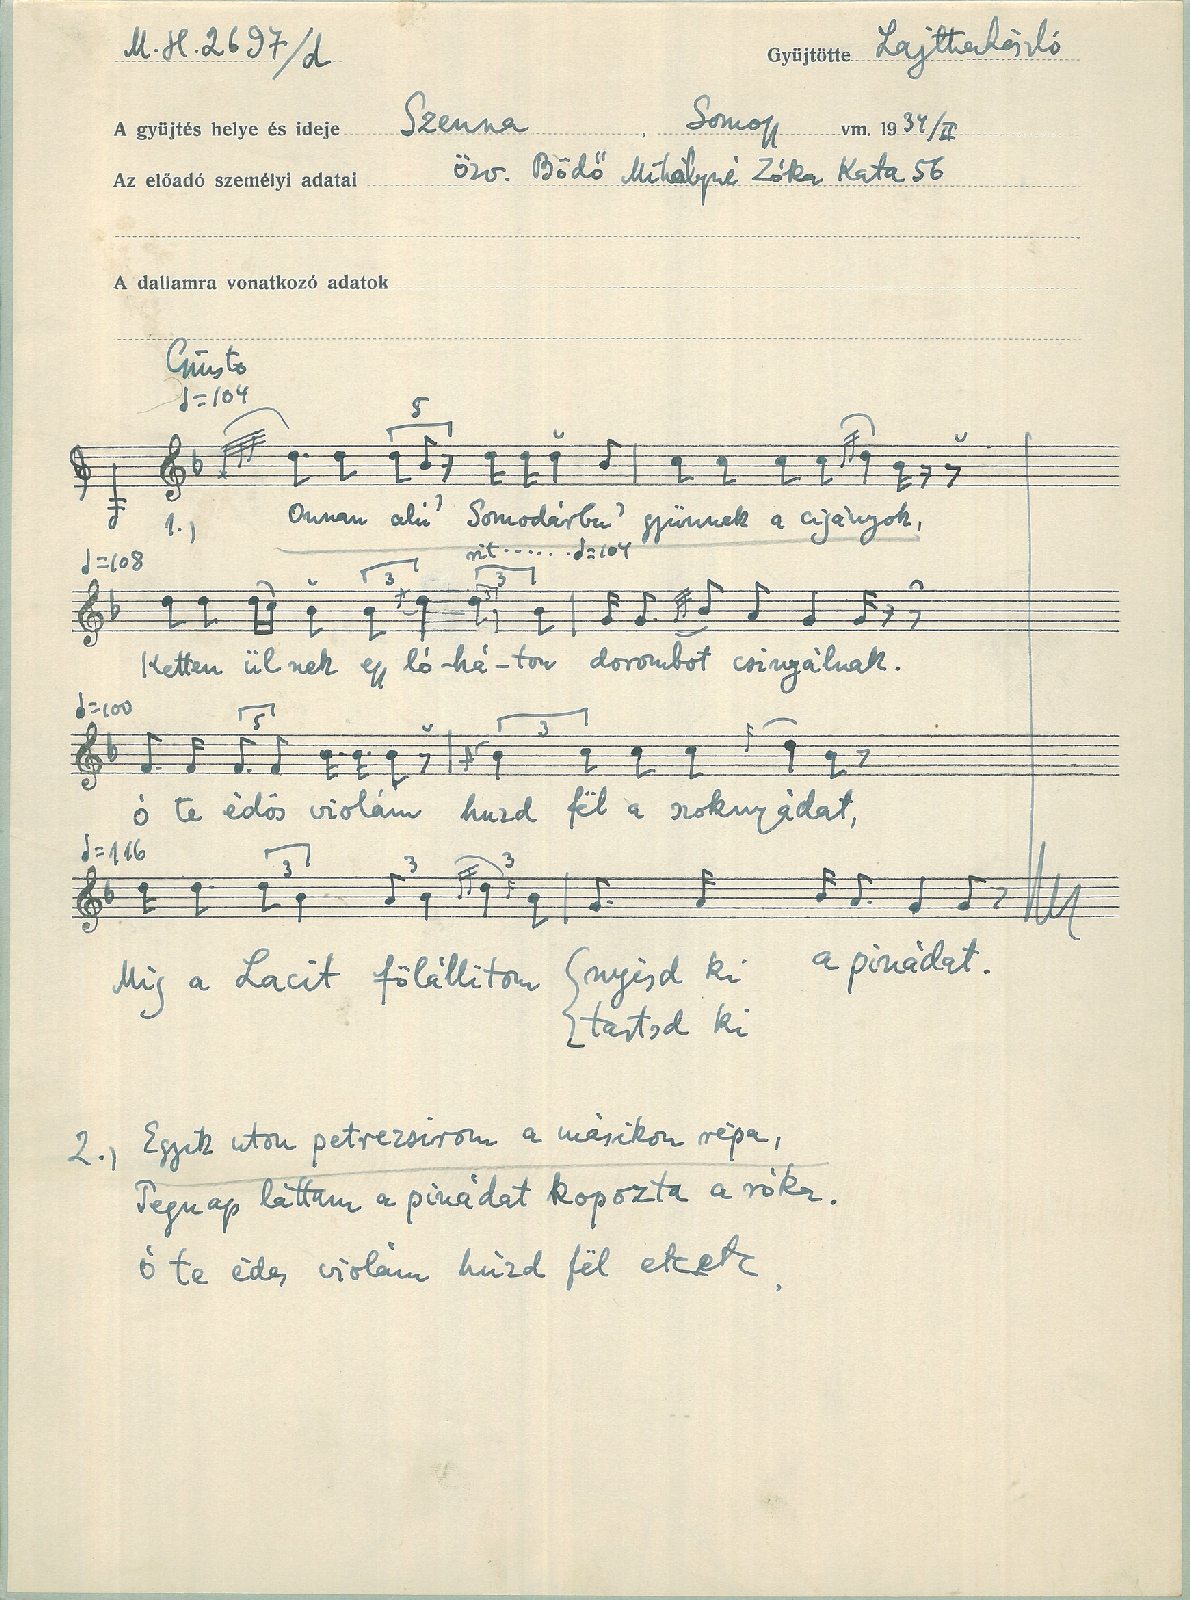 M.H.2697/d
Gyüjtötte Lajtha László
A gyüjtés helye és ideje Szenna, Somogy vm. 1934/II
Az előadó személyi adatai Özv. Bődő Mihályné Zóka Kata 56
A dallamra vonatkozó adatok
Giusto
♩=104
5
1.,
Onnan alú' Somodárbu' gyünnek a cigányok,
♩=108
rit....... ♩=104
3 3
Ketten ülnek egy ló-há-ton dorombot csinyálnak.
♩=100
5 3
Ó te édös violám huzd föl a szoknyádat,
♩=116
3 3 3
Mig a Lacit fölállitom {nyisd ki a pinádat.
{tartsd ki
2., Egyik uton petrezsirom a másikon répa,
Tegnap láttam a pinádat kopozta a róka.
Ó te édes violám húzd föl etc etc.